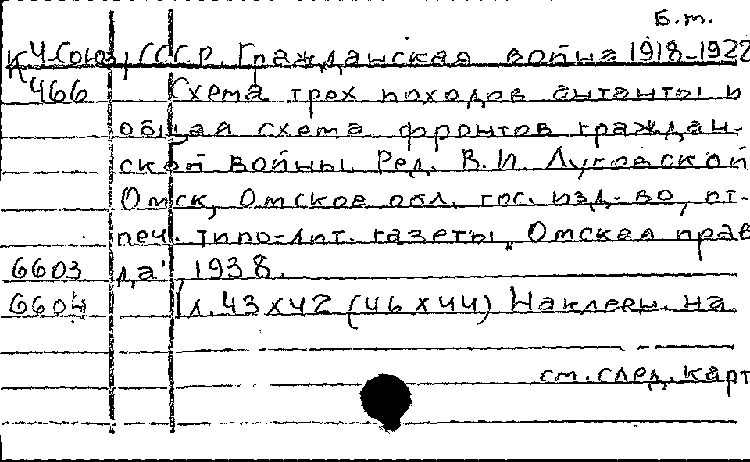 Б.т.
К 4-Союз/СССР. Гражданская война 1918-1922
К 466 Схема трех походов антанты и
общая схема фронтов граждан-
ской войны. Ред. В.И. Луговской
Омск, Омское обл. гос. изд-во, от-
печ. типо-лит. газеты „Омская прав
6603 да", 1938.
6604 1л. 43х42 (46х44) Наклеен. на
см. след. карт